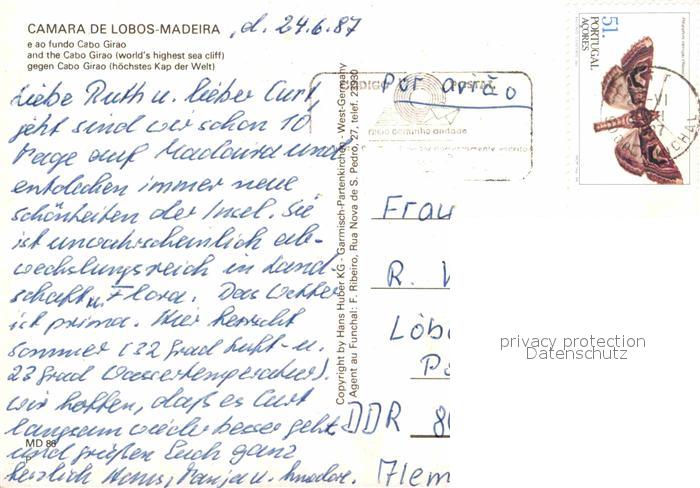 CAMARA DE LOBOS-MADEIRA , d. 24.6.87
e ao fundo Cabo Girao
and the Cabo Girao (world's highest sea cliff)
gegen Cabo Girao (höchstes Kap der Welt)
Liebe Ruth u. lieber Curt,
jetzt sind wir schon 10
Tage auf Madeira und
entdecken immer neue
Schönheiten der Insel. Sie
ist unwahrscheinlich ab-
wechslungsreich in Land-
schaft u. Flora. Das Wetter
ist prima. Hier herrscht
Sommer (32 Grad Luft- u.
23 Grad Wassertemperatur).
Wir hoffen, daß es Curt
langsam wieder besser geht
und grüßen Euch ganz
herzlich Hans, Manja u.
MD 86
P
Copyright by Hans Huber KG - Garmisch-Partenkirchen - West-Germany
Agent au Funchal: F. Ribeiro, Rua Nova de S. Pedro, 27, telef. 23930
Por avião
CÓDIGO POSTAL
meio caminho andado
51.
PORTUGAL
AÇORES
Frau
R.
Löb
DDR 80
privacy protection
Datenschutz